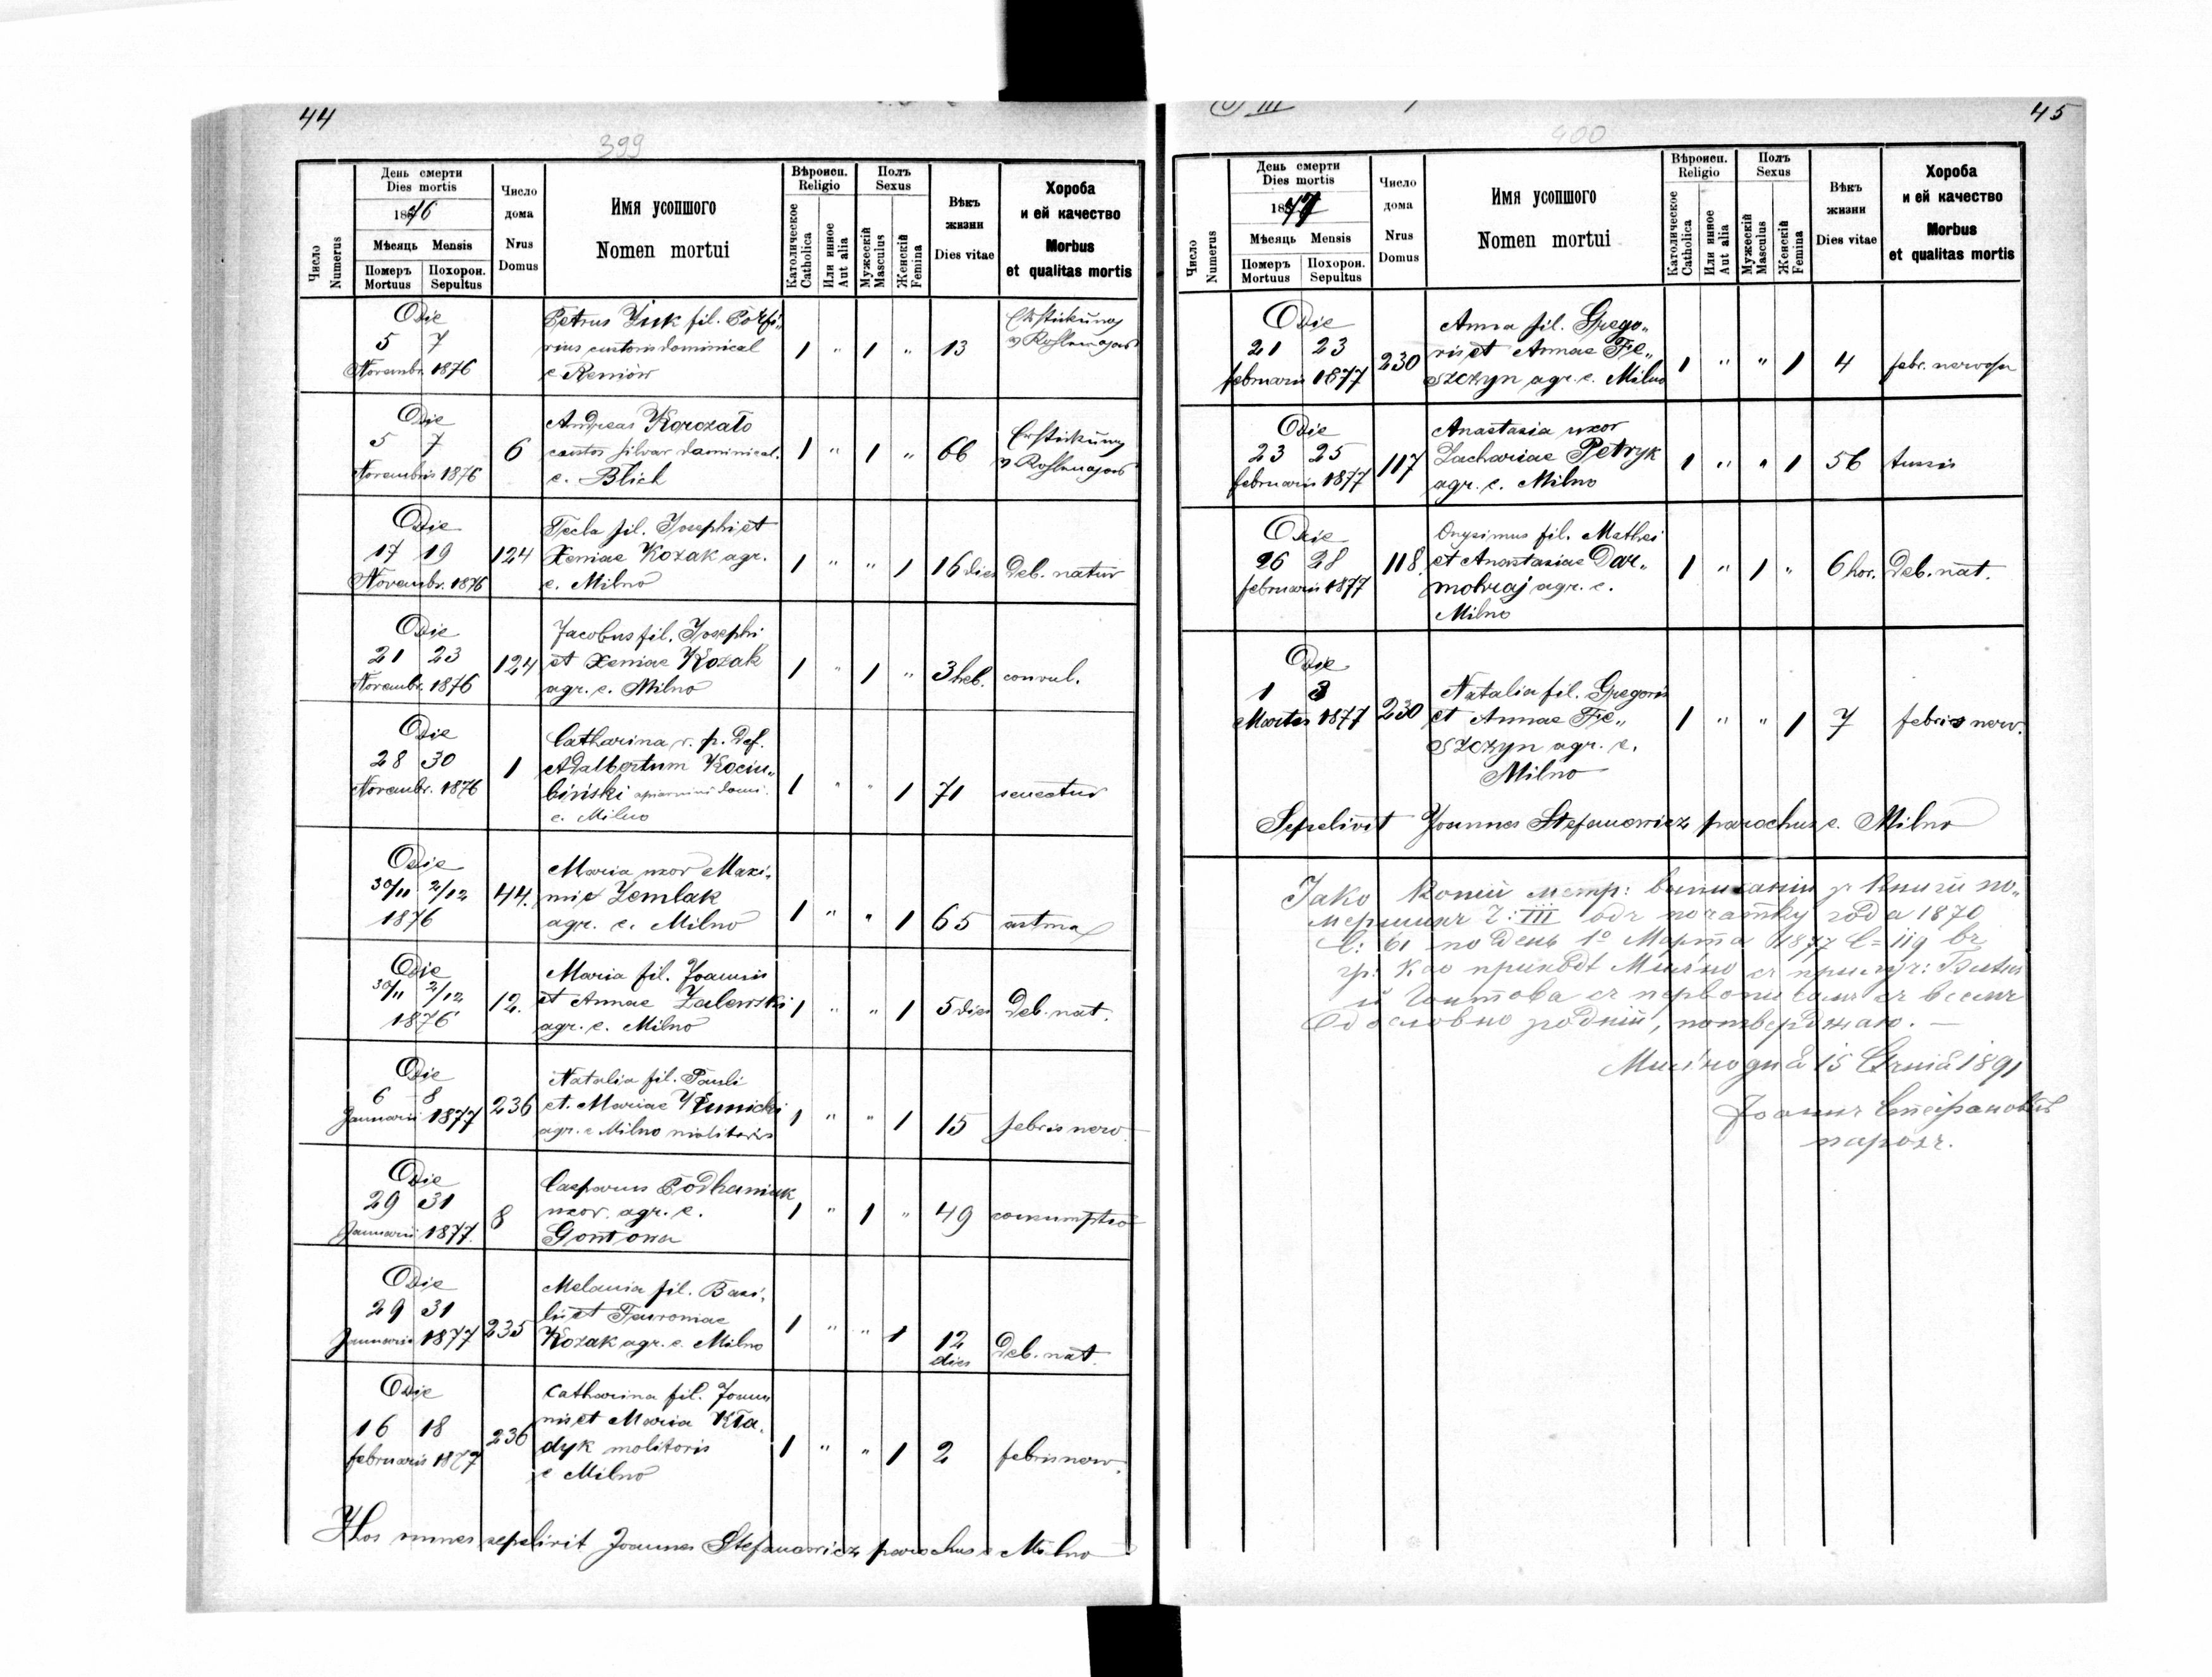 44
399
Число Numerus
День смерти
Dies mortis
1876
Мѣсяць Mensis
Померъ Похорон.
Mortuus Sepultus
Число
дома
Nrus
Domus
Имя усопшого
Nomen mortui
Вѣроисп.
Religio
Католическое Catholica
Или инное Aut alia
Полъ
Sexus
Мужескій Masculus
Женскій Femina
Вѣкъ
жизни
Dies vitae
Хороба
и ей качество
Morbus
et qualitas mortis
Die
5 7
Novembr. 1876
Petrus fil. Porfi„
rius custoris dominical
c Reniów
1 " 1 " 13
Erstickung
Die
5 7
Novembris 1876
6
Andreas
custos silvar dominical.
c. Blich
1 " 1 " 66
Erstickung
Die
17 19
Novembr. 1876
124
Tecla fil. Josephi et
Xeniae Kozak agr.
c. Milno
1 " " 1 16 dies Deb. natur
Die
21 23
Novembr. 1876
124
Jacobus fil. Josephi
et Xeniae Kozak
agr. c. Milno
1 " 1 " 3 heb. convul.
Die
28 30
Novembr. 1876
1
Catharina r. p. Def.
Adalbertum Kociu„
biński
c. Milno
1 " " 1 71 senectus
Die
30/11 2/12
1876
44.
Maria uxor Maxi„
mi Zemlak
agr. c. Milno
1 " " 1 65 astma
Die
30/11 2/12
1876
12.
Maria fil. Joannis
et Annae Zalewski
agr. c. Milno
1 " " 1 5 dies Deb. nat.
Die
6 8
Januarii 1877
236
Natalia fil. Pauli
et. Mariae
agr. c Milno molitoris
1 " " 1 15 febris nerv.
Die
29 31
Januarii 1877.
8
Casparus Podhaniuk
uxor. agr. c.
Gontowa
1 " 1 " 49 consumptio
Die
29 31
Januaris 1877
235
Melania fil. Basi„
lii et Fewroniae
Kozak agr. c. Milno
1 " " 1 12 dies Deb. nat.
Die
16 18
februaris 1877
236
Catharina fil. Joan„
nis et Maria Kła„
dyk molitoris
c Milno
1 " " 1 2 febris nerv.
Hos omnes sepelivit Joannes Stefanowicz parochus c Milno
III
45
400
Число Numerus
День смерти
Dies mortis
1877
Мѣсяць Mensis
Померъ Похорон.
Mortuus Sepultus
Число
дома
Nrus
Domus
Имя усопшого
Nomen mortui
Вѣроисп.
Religio
Католическое Catholica
Или инное Aut alia
Полъ
Sexus
Мужескій Masculus
Женскій Femina
Вѣкъ
жизни
Dies vitae
Хороба
и ей качество
Morbus
et qualitas mortis
Die
21 23
februaris 1877
230
Anna fil. Grego„
ris et Annae Fe„
szczyn agr. c. Milno
1 " " 1 4 febr. nervosa
Die
23 25
februaris 1877
117
Anastasia uxor
Zachariae Petryk
agr. c. Milno
1 " " 1 56 tussis
Die
26 28
februaris 1877
118.
Onysimus fil. Mathei
et Anastasiae Dar„
mohraj agr. c.
Milno
1 " 1 " 6 hor. Deb. nat.
Die
1 3
Martis 1877
230
Natalia fil. Gregoris
et Annae Fe„
szczyn agr. c.
Milno
1 " " 1 7 febris nerv.
Sepelivit Joannes Stefanowicz parochus c. Milno
Јако копію метр: з книги по„
мершихъ Ч: III одъ початку года 1870
С: 61 по день 1º Марта 1877 С=119
Мильно
й Гонтова
дословно, потверджаю. —
Мильно дня 15 1891
Іоаннъ Стефановичъ
парохъ.